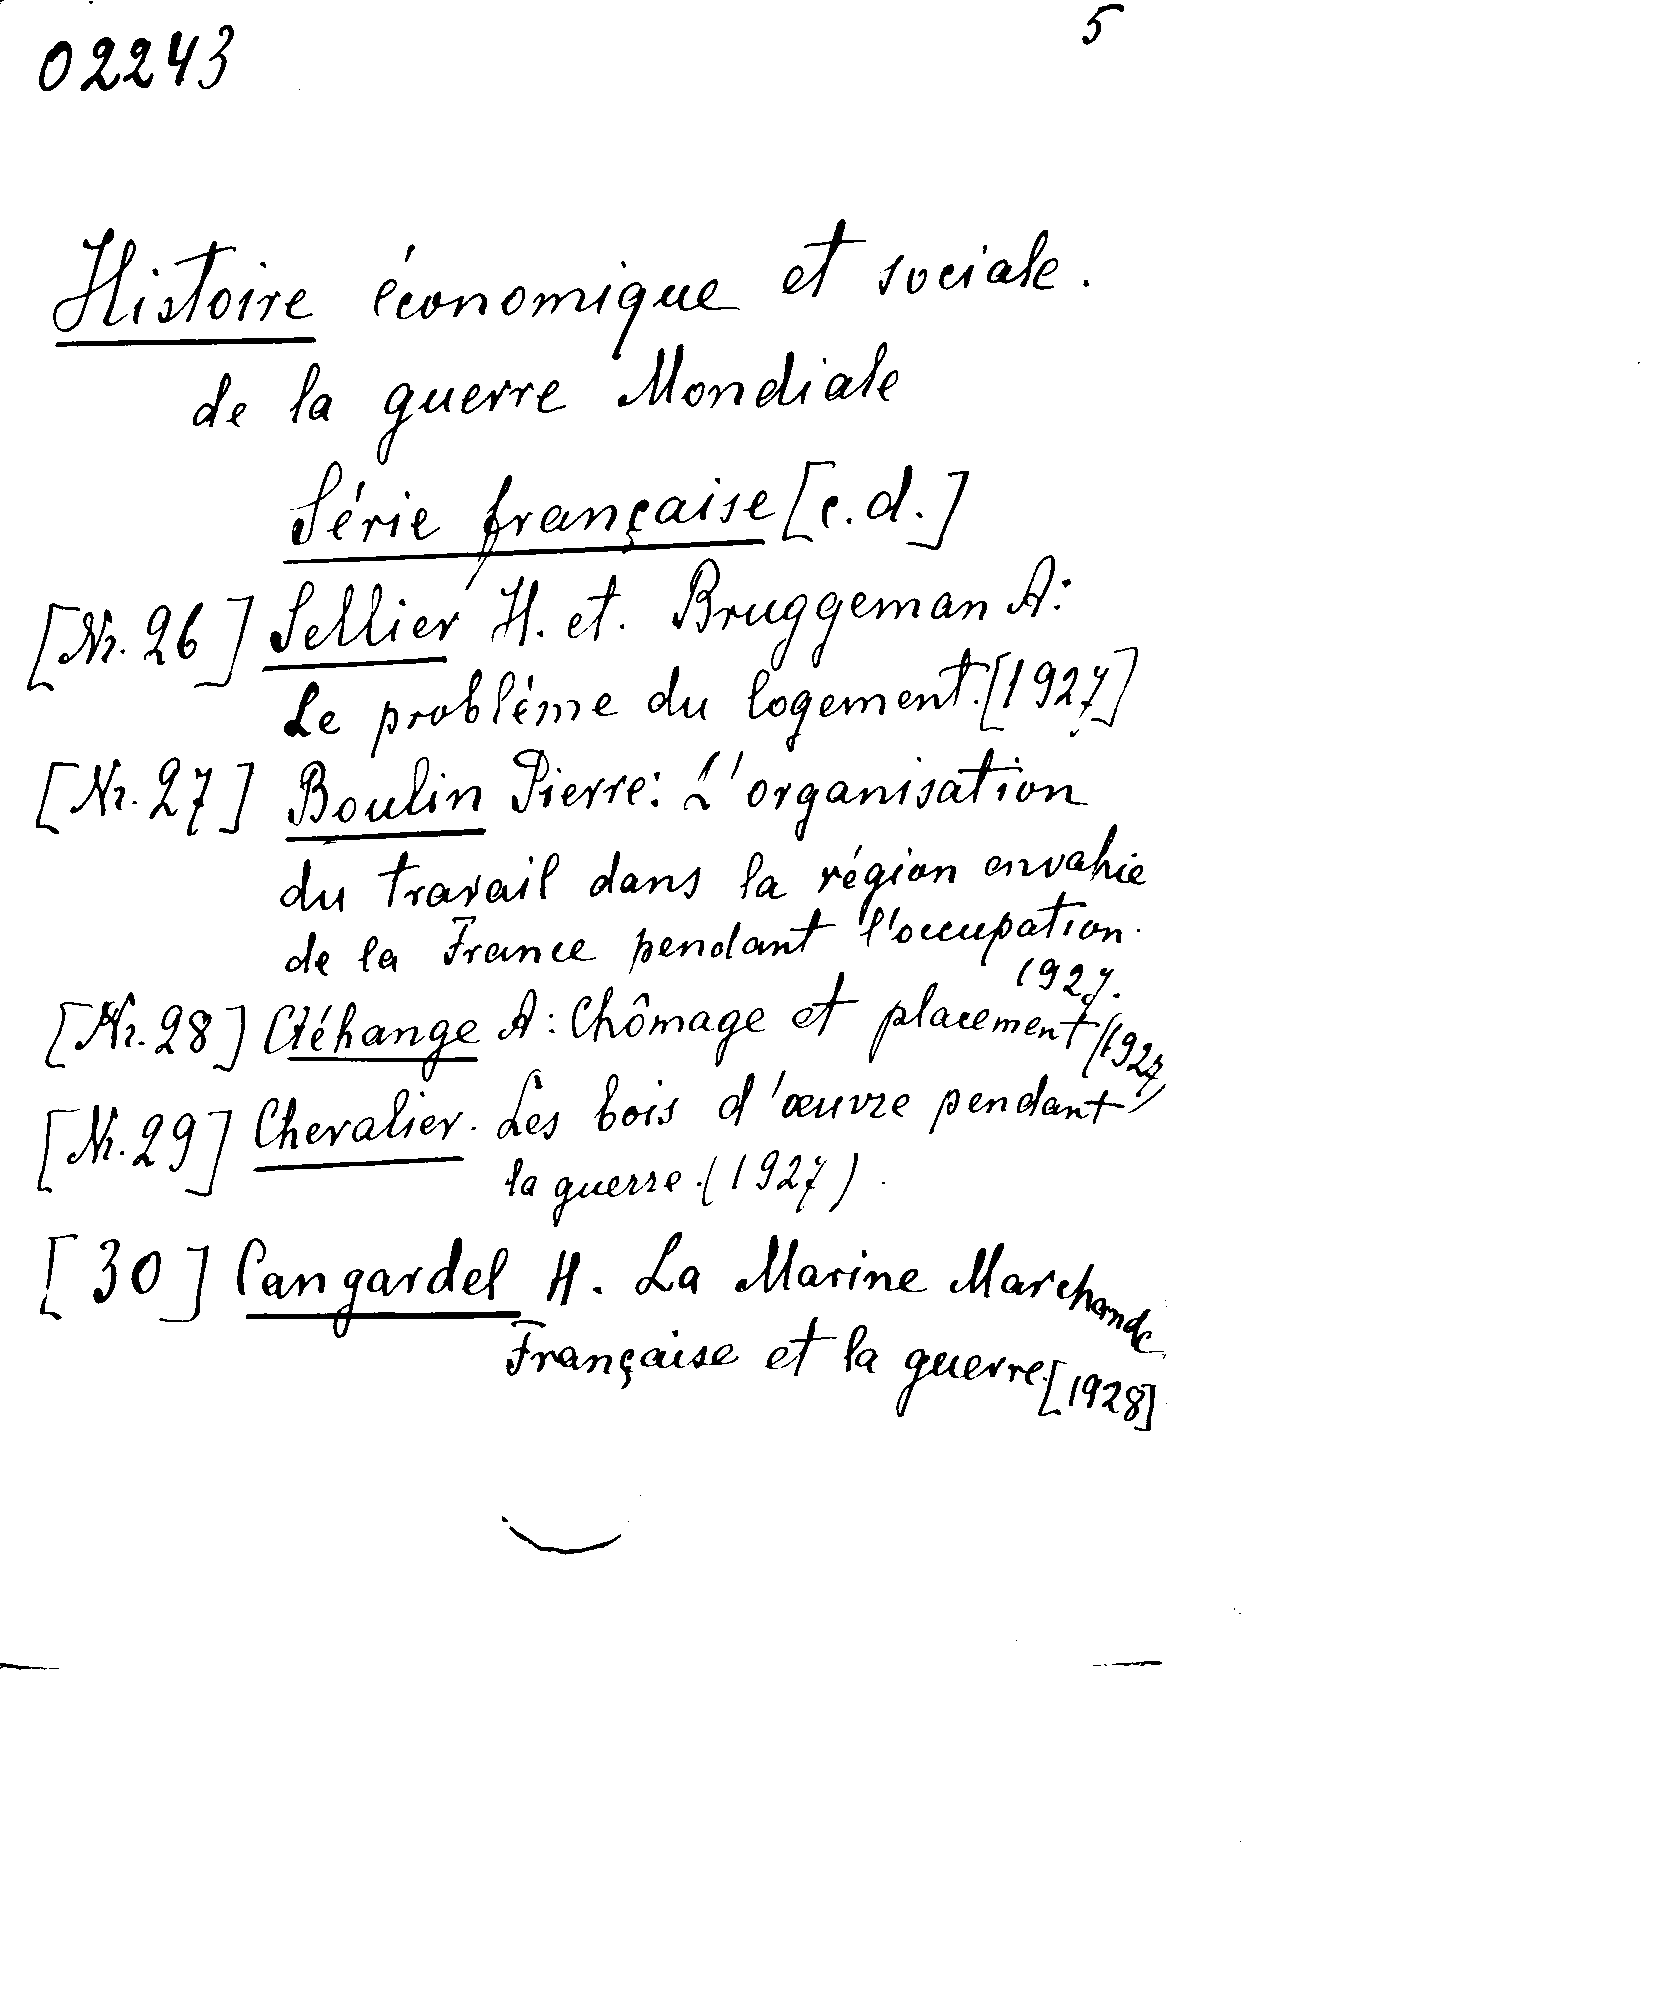 02243
5
Histoire économique et sociale.
de la guerre Mondiale
Série française [c.d.]
[Nr. 26] Sellier H. et. Bruggeman A:
Le probléme du logement. [1927]
[Nr. 27] Boulin Pierre: L'organisation
du travail dans la région envahie
de la France pendant l'occupation.
1927.
[Nr. 28] Créhange A: Chômage et placement (1927)
[Nr. 29] Chevalier. Les bois d'œuvre pendant
la guerre. (1927)
[30] Cangardel H. La Marine Marchande
Française et la guerre. [1928]